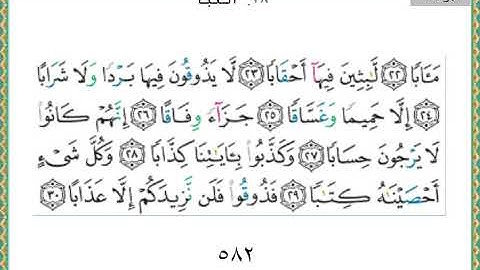 مَـَٔابًا ٢٢ لَّٰبِثِينَ فِيهَآ أَحْقَابًا ٢٣ لَّا يَذُوقُونَ فِيهَا بَرْدًا وَلَا شَرَابًا
٢٤ إِلَّا حَمِيمًا وَغَسَّاقًا ٢٥ جَزَآءً وِفَاقًا ٢٦ إِنَّهُمْ كَانُوا۟
لَا يَرْجُونَ حِسَابًا ٢٧ وَكَذَّبُوا۟ بِـَٔايَٰتِنَا كِذَّابًا ٢٨ وَكُلَّ شَىْءٍ
أَحْصَيْنَٰهُ كِتَٰبًا ٢٩ فَذُوقُوا۟ فَلَن نَّزِيدَكُمْ إِلَّا عَذَابًا ٣٠
٥٨٢